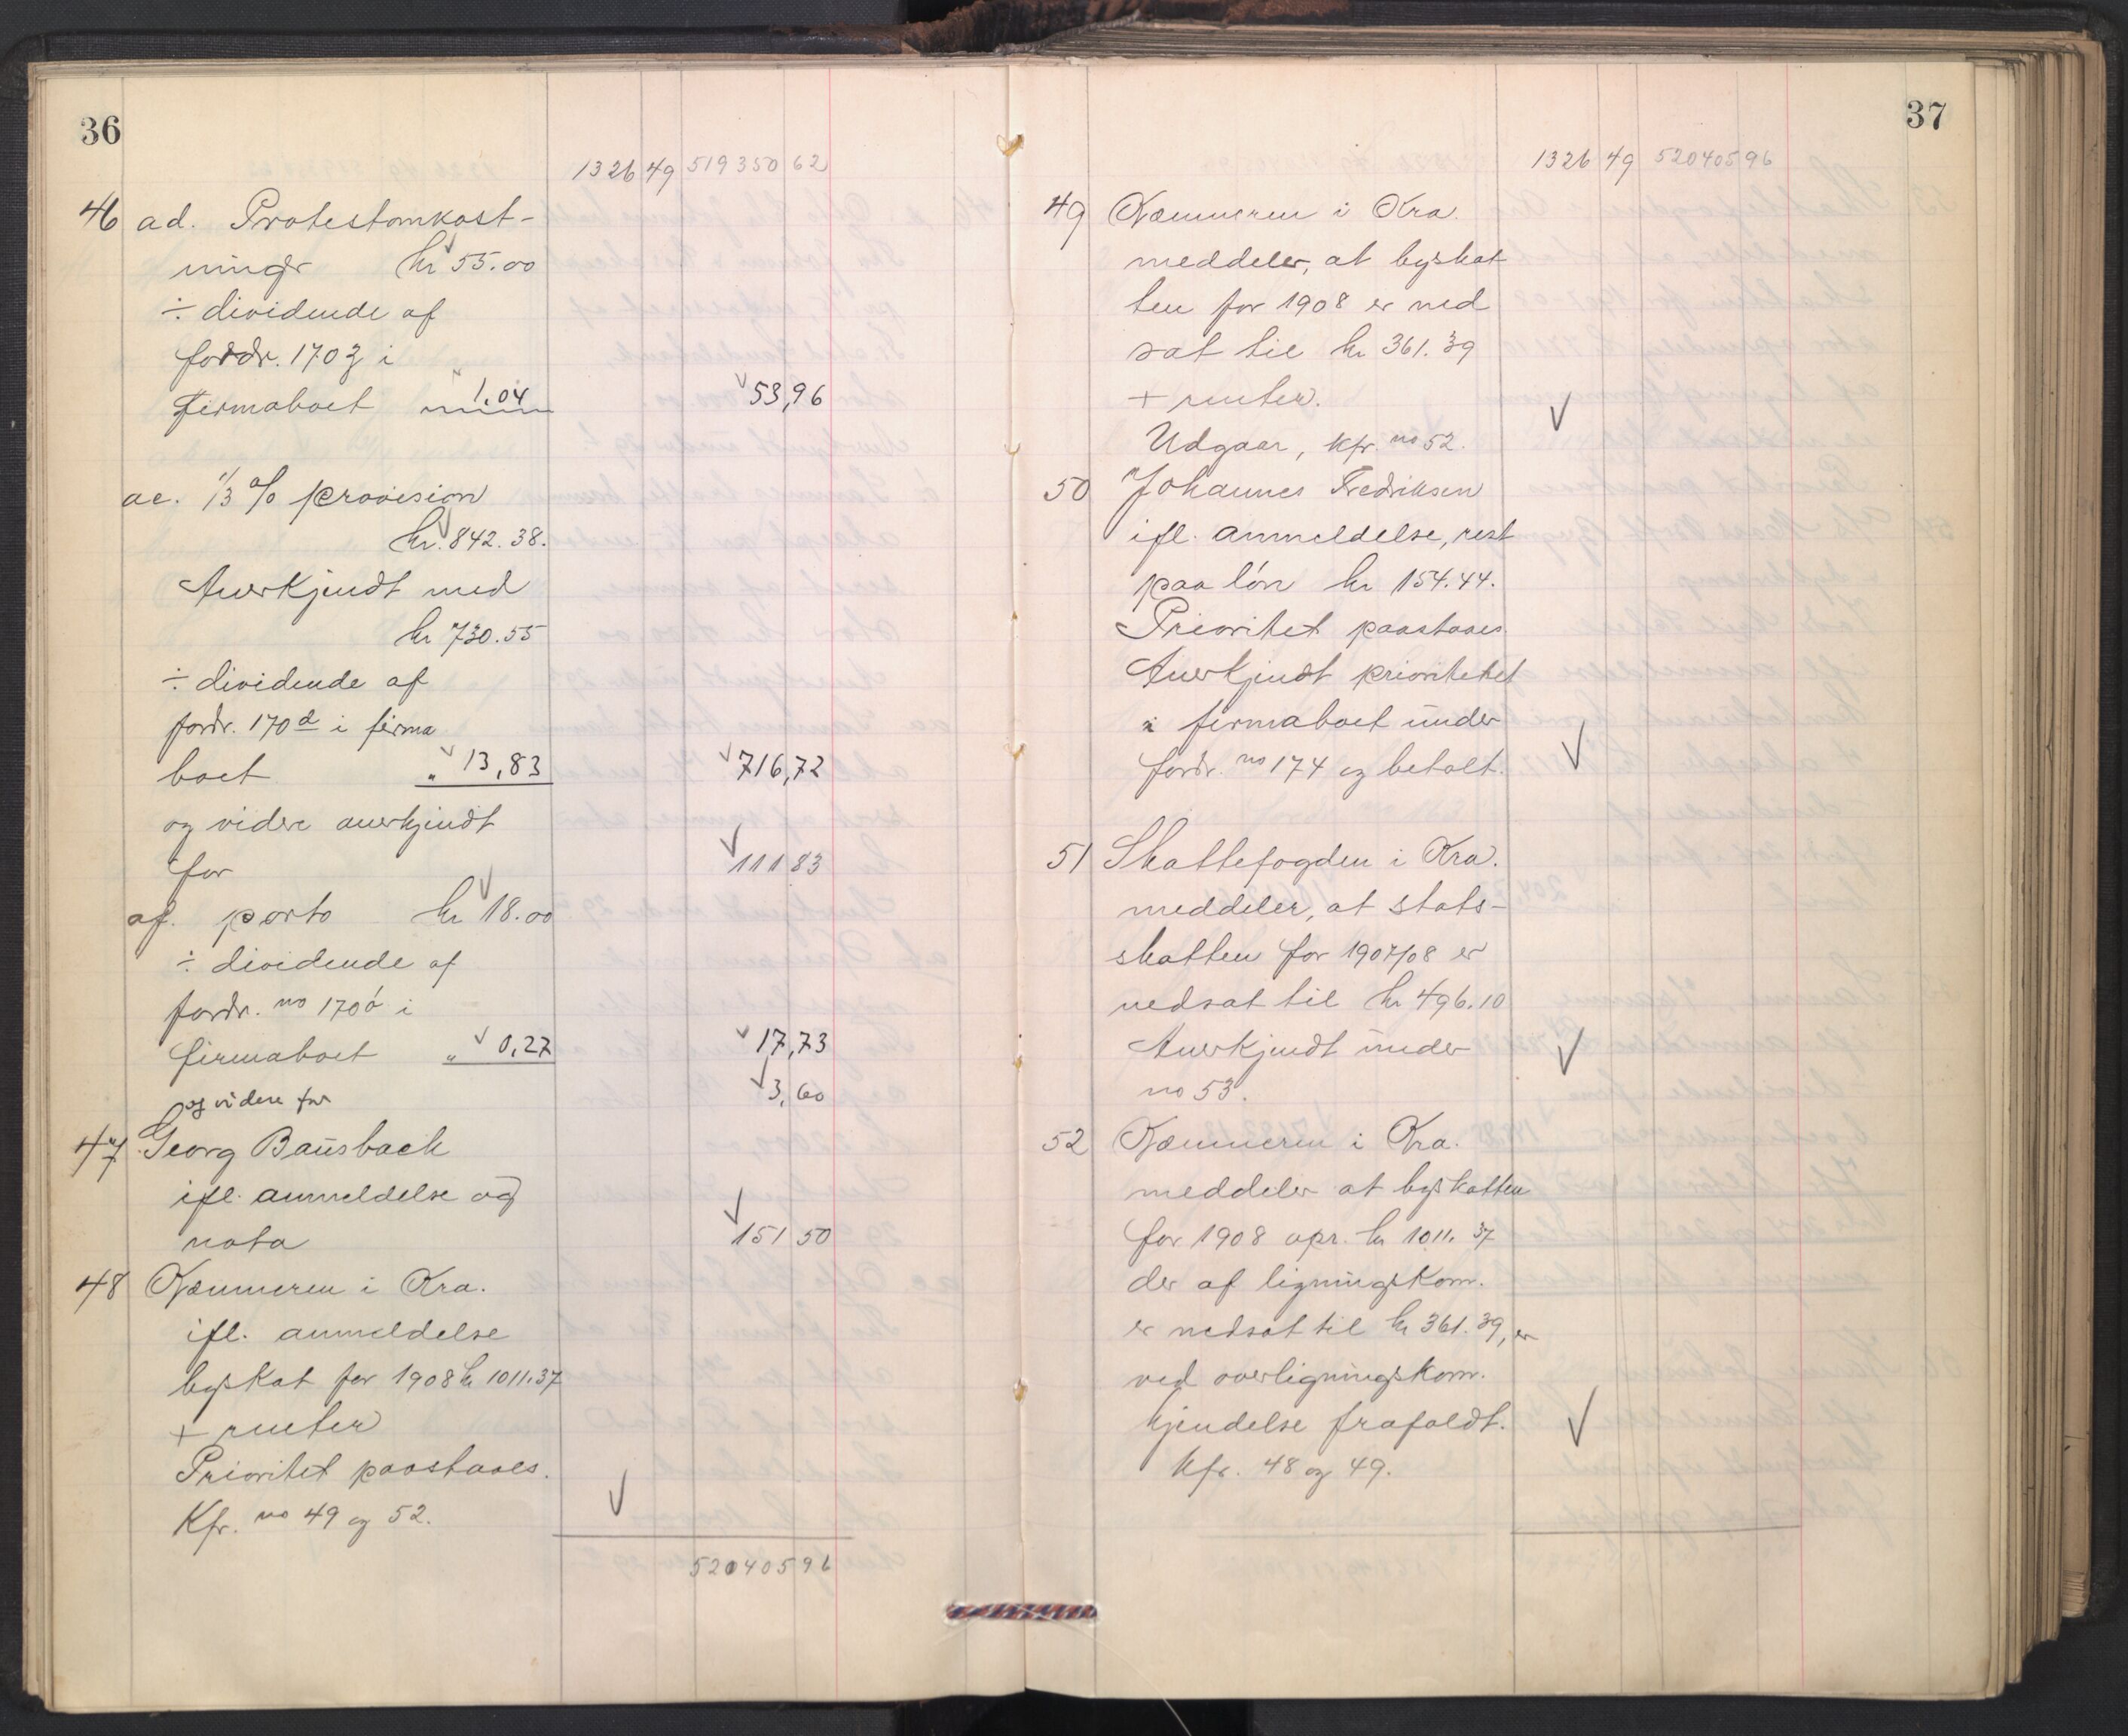 36
1326 49 519350 62
46 ad. Protestomkost-
ninger kr 55.00
÷ dividende af
fordr. 170 z i
firmaboet " 1.04 53,96
ae. 1/3 % provision
kr. 842.38.
Anerkjendt med
kr 730.55
÷ dividende af
fordr. 170 d i firma
boet " 13,83 716,72
og videre anerkjendt
for 111 83
af. porto kr 18.00
÷ dividende af
fordr. no 170 ö i
firmaboet " 0,27 17,73
og videre for 3,60
47 Georg Bausback
ifl. anmeldelse og
nota 151 50
48 Kæmneren i Kra.
ifl. anmeldelse
byskat for 1908 kr 1011.37
+ renter
Prioritet paastaaes.
Kfr. no 49 og 52.
520405 96
37
1326 49 520405 96
49 Kæmneren i Kra.
meddeler, at byskat
ten for 1908 er ned
sat til kr 361.39
+ renter.
Udgaar, kfr. no 52.
50 Johannes Fredriksen
ifl. anmeldelse, rest
paa lön kr 154.44.
Prioritet paastaaes
Anerkjendt prioritetet
i firmaboet under
fordr. no 174 og betalt.
51 Skattefogden i Kra.
meddeler, at stats-
skatten for 1907/08 er
nedsat til kr 496.10
Anerkjendt under
no 53.
52 Kæmneren i Kra.
meddeler at byskatten
for 1908 opr. kr 1011.37
der af ligningskom.
er nedsat til kr 361.39, er
ved overligningskom.
kjendelse frafaldt.
Kfr. 48 og 49.